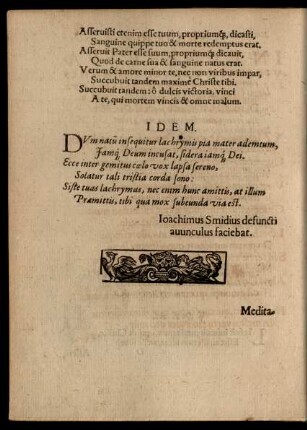 Asseruisti etenim esse tuum, propriumq́;, dicasti,
Sanguine quippe tuo & morte redemptus erat.
Asseruit Pater esse suum, propriumq́; dicauit,
Quod de carne sua & sanguine natus erat.
Verum & amore minor te, nec non viribus impar,
Succubuit tandem maximè Christe tibi.
Succubuit tandem: ô dulcis victoria, vinci
A te, qui mortem vincis & omne malum.
IDEM.
DVm natũ insequitur lachrymis pia mater ademtum,
Jamq́; Deum incusat, sidera iamq́; Dei.
Ecce inter gemitus cœlo vox lapsa sereno,
Solatur tali tristia corda sono:
Siste tuas lachrymas, nec enim hunc amittis, at illum
Præmittis, tibi qua mox subeunda via est.
Ioachimus Smidius defuncti
auunculus faciebat.
Medita-